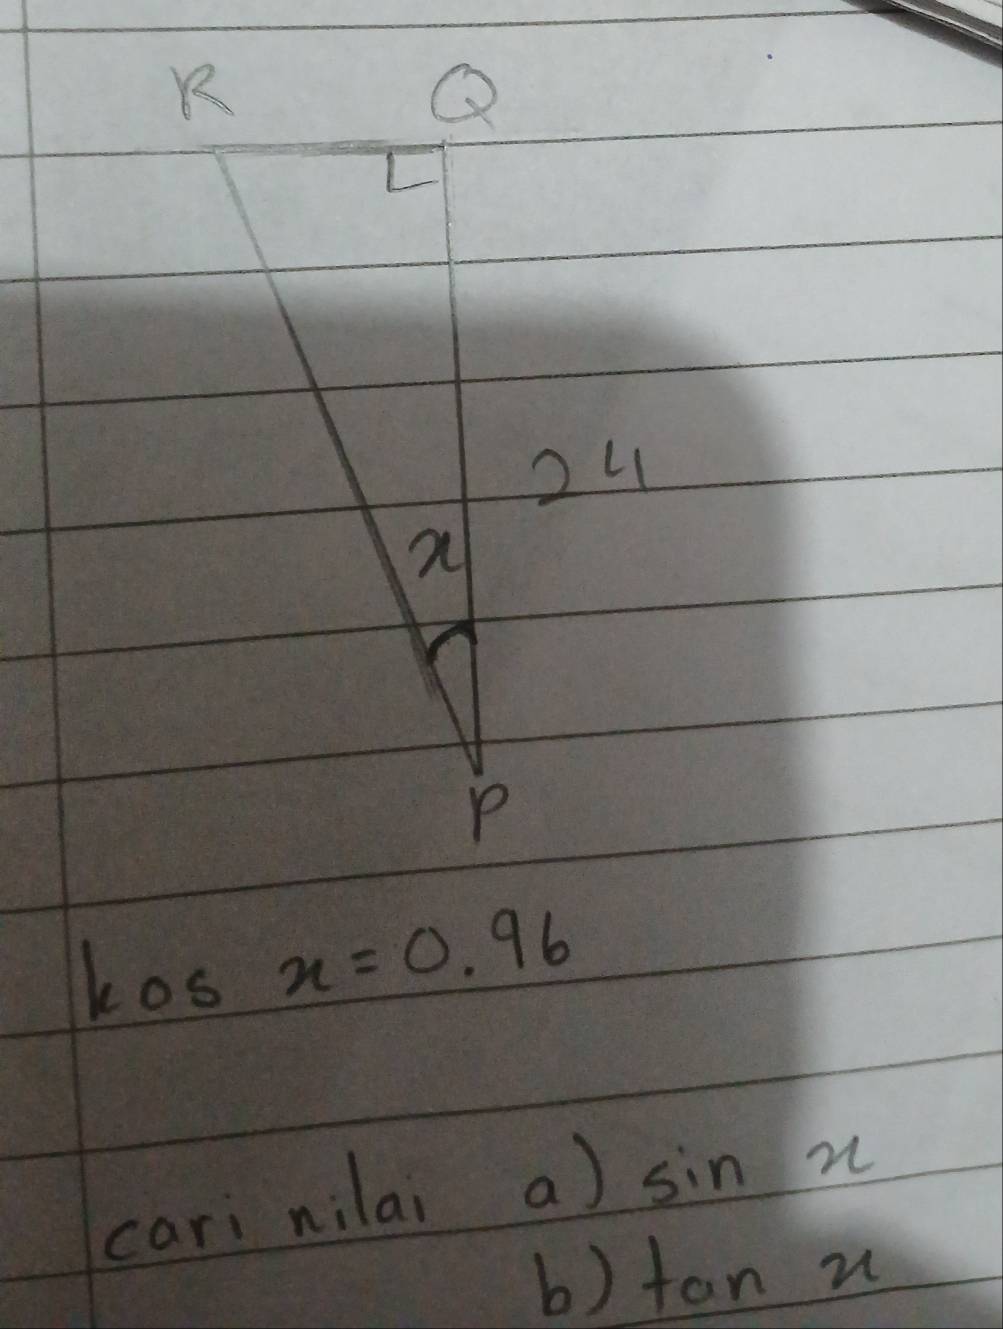 R Q
24
x
P
kos x = 0.96
cari nilai a) sin x
b) tan x